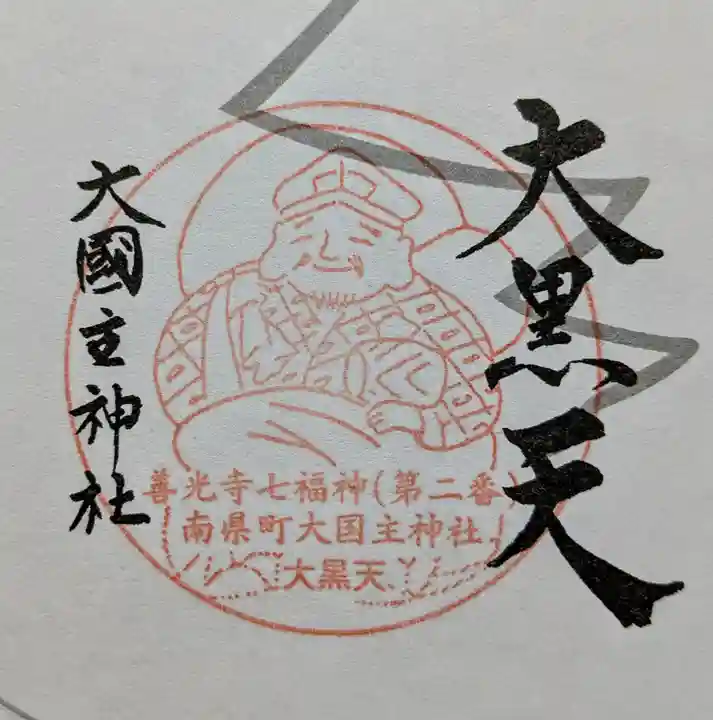 大黒天
大國主神社
善光寺七福神(第二番)
南県町大国主神社
大黒天